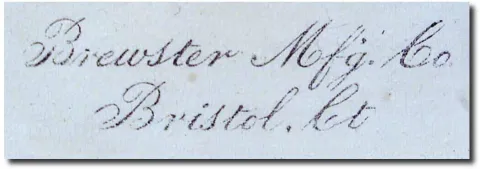 Brewster Mf'g. Co
Bristol. Ct